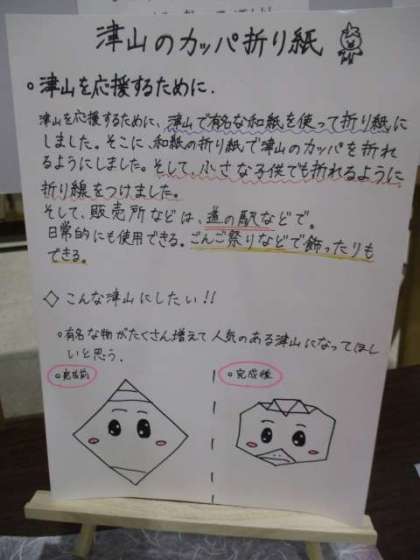 津山のカッパ折り紙
○津山を応援するために.
津山を応援するために、津山で有名な和紙を使って折り紙に
しました。そこに、和紙の折り紙で津山のカッパを折れ
るようにしました。そして、小さな子供でも折れるように
折り線をつけました。
そして、販売所などは、道の駅などで。
日常的にも使用できる。ごんご祭りなどで飾ったりも
できる。
◇こんな津山にしたい!!
○有名な物がたくさん増えて人気のある津山になってほし
いと思う.
○完成前
○完成後